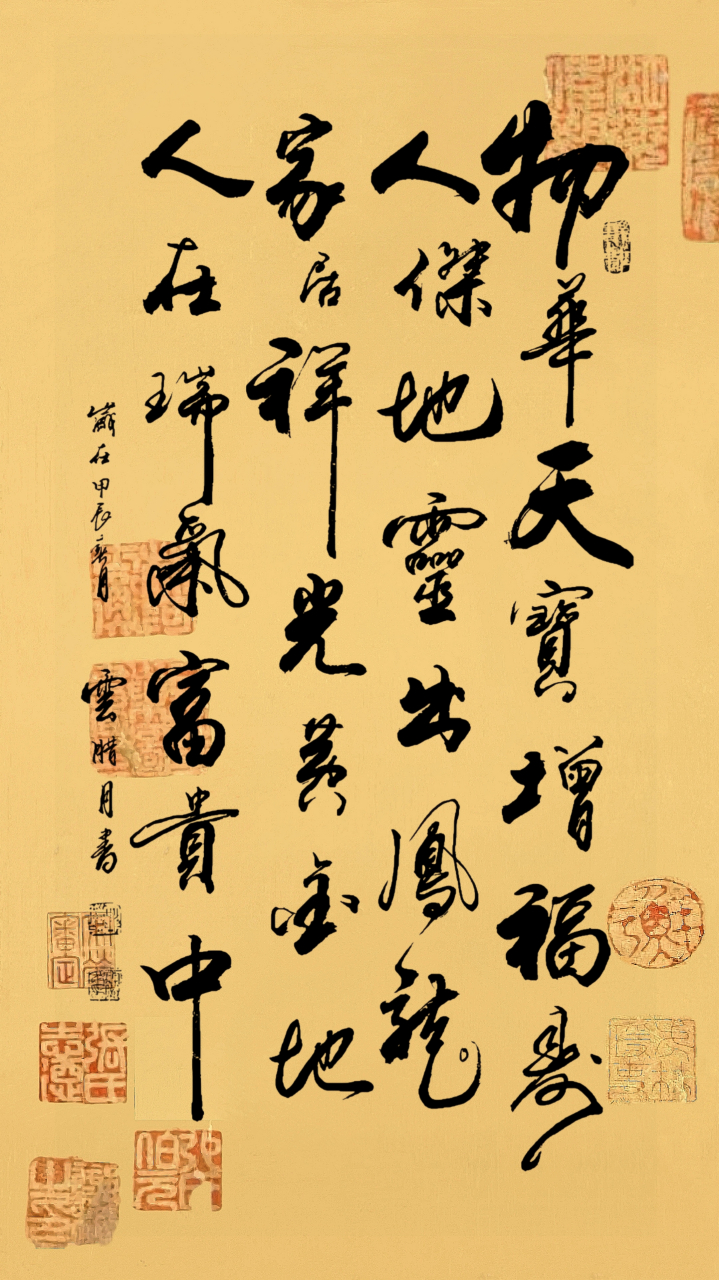 物華天寶增福壽
人傑地靈出鳳龍
家居祥光黃金地
人在瑞氣富貴中
歲在甲辰春月
雲腊月書